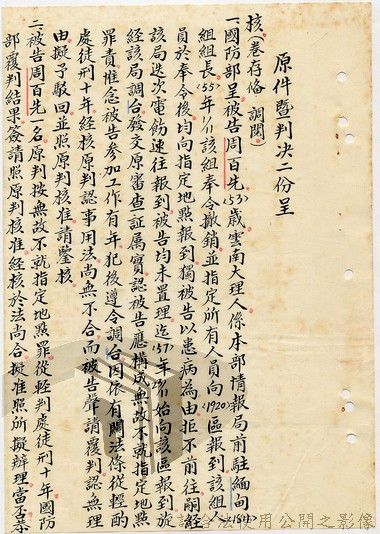 原件暨判決二份呈
核(卷存俻調閱)
一、國防部呈被告周百先(53)歲雲南大理人係本部情報局前駐緬甸(1814)
組組長(55)年1/1該組奉令撤銷並指定所有人員向(1920)區報到該組人
員於奉令後均向指定地點報到獨被告以患病為由拒不前往嗣經
該局迭次電飭速往報到被告均未置理迄(57)年2/1始向該區報到旋
經該局調台發交原審查証屬實認被告應構成無故不就指定地點
罪責惟念被告參加工作有年犯後遵令調台因依有關法條從輕酌
處徒刑十年經核原判認事用法尚無不合而被告聲請覆判認無理
由擬予駁回並照原判核准請鑒核
二、被告周百先一名原判按無故不就指定地點罪從輕判處徒刑十年國防
部覆判結果簽請照原判核准經核於法尚合擬准照所擬辦理當否恭